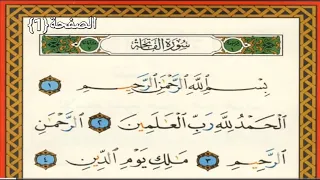 الصفحة{1}
سُورَةُ الفَاتِحَةِ
بِسْمِ اللَّهِ الرَّحْمَٰنِ الرَّحِيمِ ١
الْحَمْدُ لِلَّهِ رَبِّ الْعَالَمِينَ ٢ الرَّحْمَٰنِ
الرَّحِيمِ ٣ مَالِكِ يَوْمِ الدِّينِ ٤